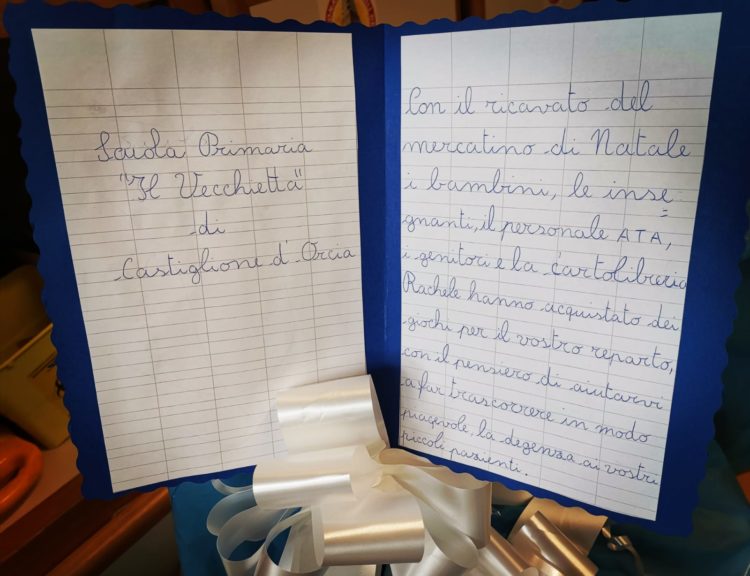 Scuola Primaria
"Il Vecchietta"
di
Castiglione d'Orcia
Con il ricavato del
mercatino di Natale
i bambini, le inse=
gnanti, il personale ATA,
i genitori e la cartolibreria
Rachele hanno acquistato dei
giochi per il vostro reparto,
con il pensiero di aiutarvi
a far trascorrere in modo
piacevole, la degenza ai vostri
piccoli pazienti.